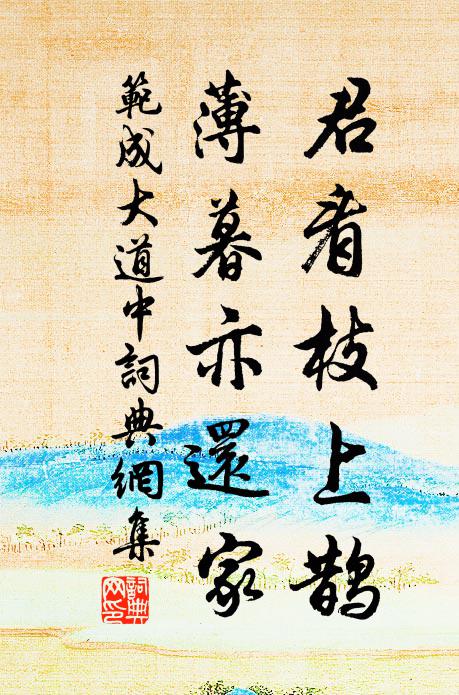 君看枝上鵲
薄暮亦還家
範成大道中詞典網集
詞典
网印